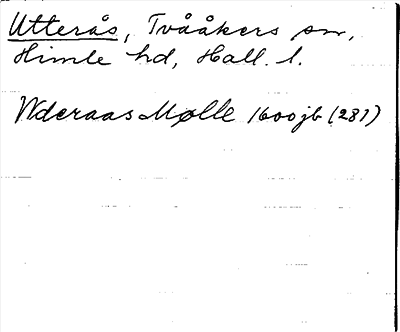 Utterås, Tvååkers sn,
Himle hd, Hall. l.
Wderaas Mølle 1600 jb (287)